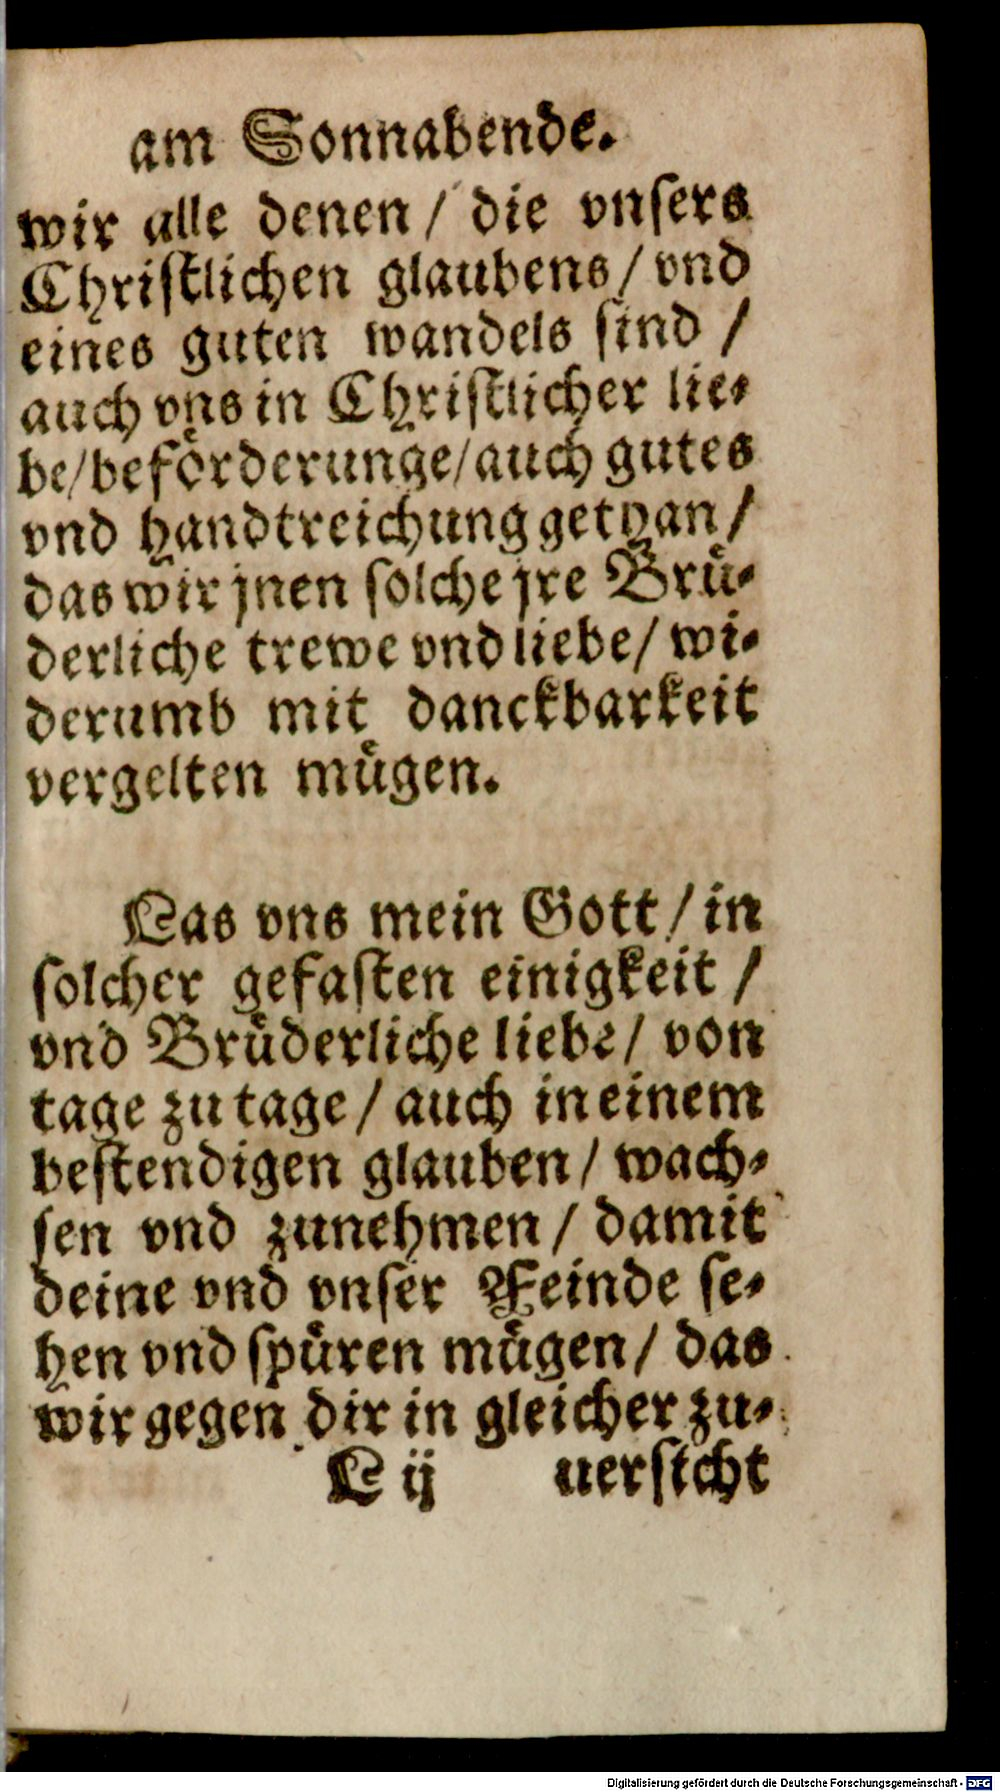 am Sonnabende.
wir alle denen / die vnsers
Christlichen glaubens / vnd
eines guten wandels sind /
auch vns in Christlicher lie-
be / befoͤrderunge / auch gutes
vnd handtreichung gethan /
das wir jnen solche jre Bruͤ-
derliche trewe vnd liebe / wi-
derumb mit danckbarkeit
vergelten muͤgen.
Las vns mein Gott / in
solcher gefasten einigkeit /
vnd Bruͤderliche liebe / von
tage zu tage / auch in einem
bestendigen glauben / wach-
sen vnd zunehmen / damit
deine vnd vnser Feinde se-
hen vnd spuͤren muͤgen / das
wir gegen dir in gleicher zu-
L ij uersicht
Digitalisierung gefördert durch die Deutsche Forschungsgemeinschaft - DFG